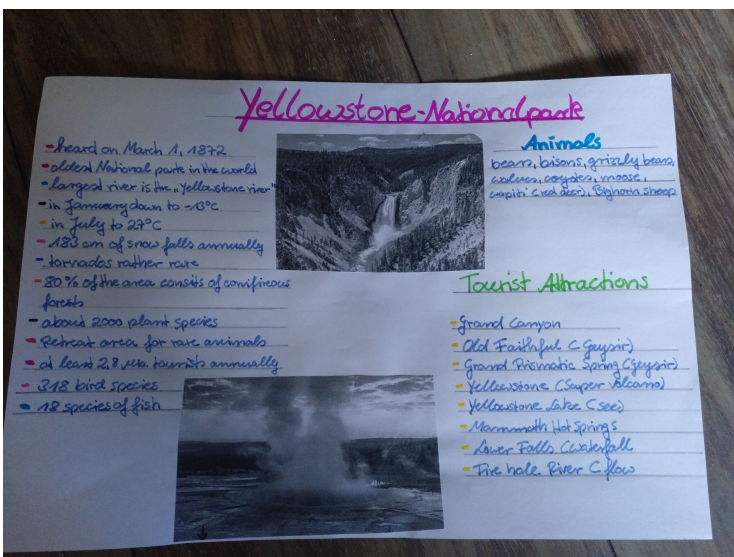 Yellowstone-Nationalpark
- heard on March 1, 1872
- oldest National park in the world
- largest river is the „Yellowstone river"
- in January down to -13°C
- in July to 27°C
- 183 cm of snow falls annually
- tornados rather rare
- 80% of the area consits of conifireous
forests
- about 2000 plant species
- Retreat area for rare animals
- at least 2,8 Mio. tourists annually
- 318 bird species
- 18 species of fish
Animals
bears, bisons, grizzly bears,
wolves, coyotes, moose,
wapiti (red deer), Bighorn sheep
Tourist Attractions
- Grand Canyon
- Old Faithful ( Geysir)
- Grand Prismatic Spring (Geysir)
- Yellowstone (Super volcano)
- Yellowstone Lake (see)
- Mammoth Hot Springs
- Lower Falls (Waterfall
- Fire hole River ( flow